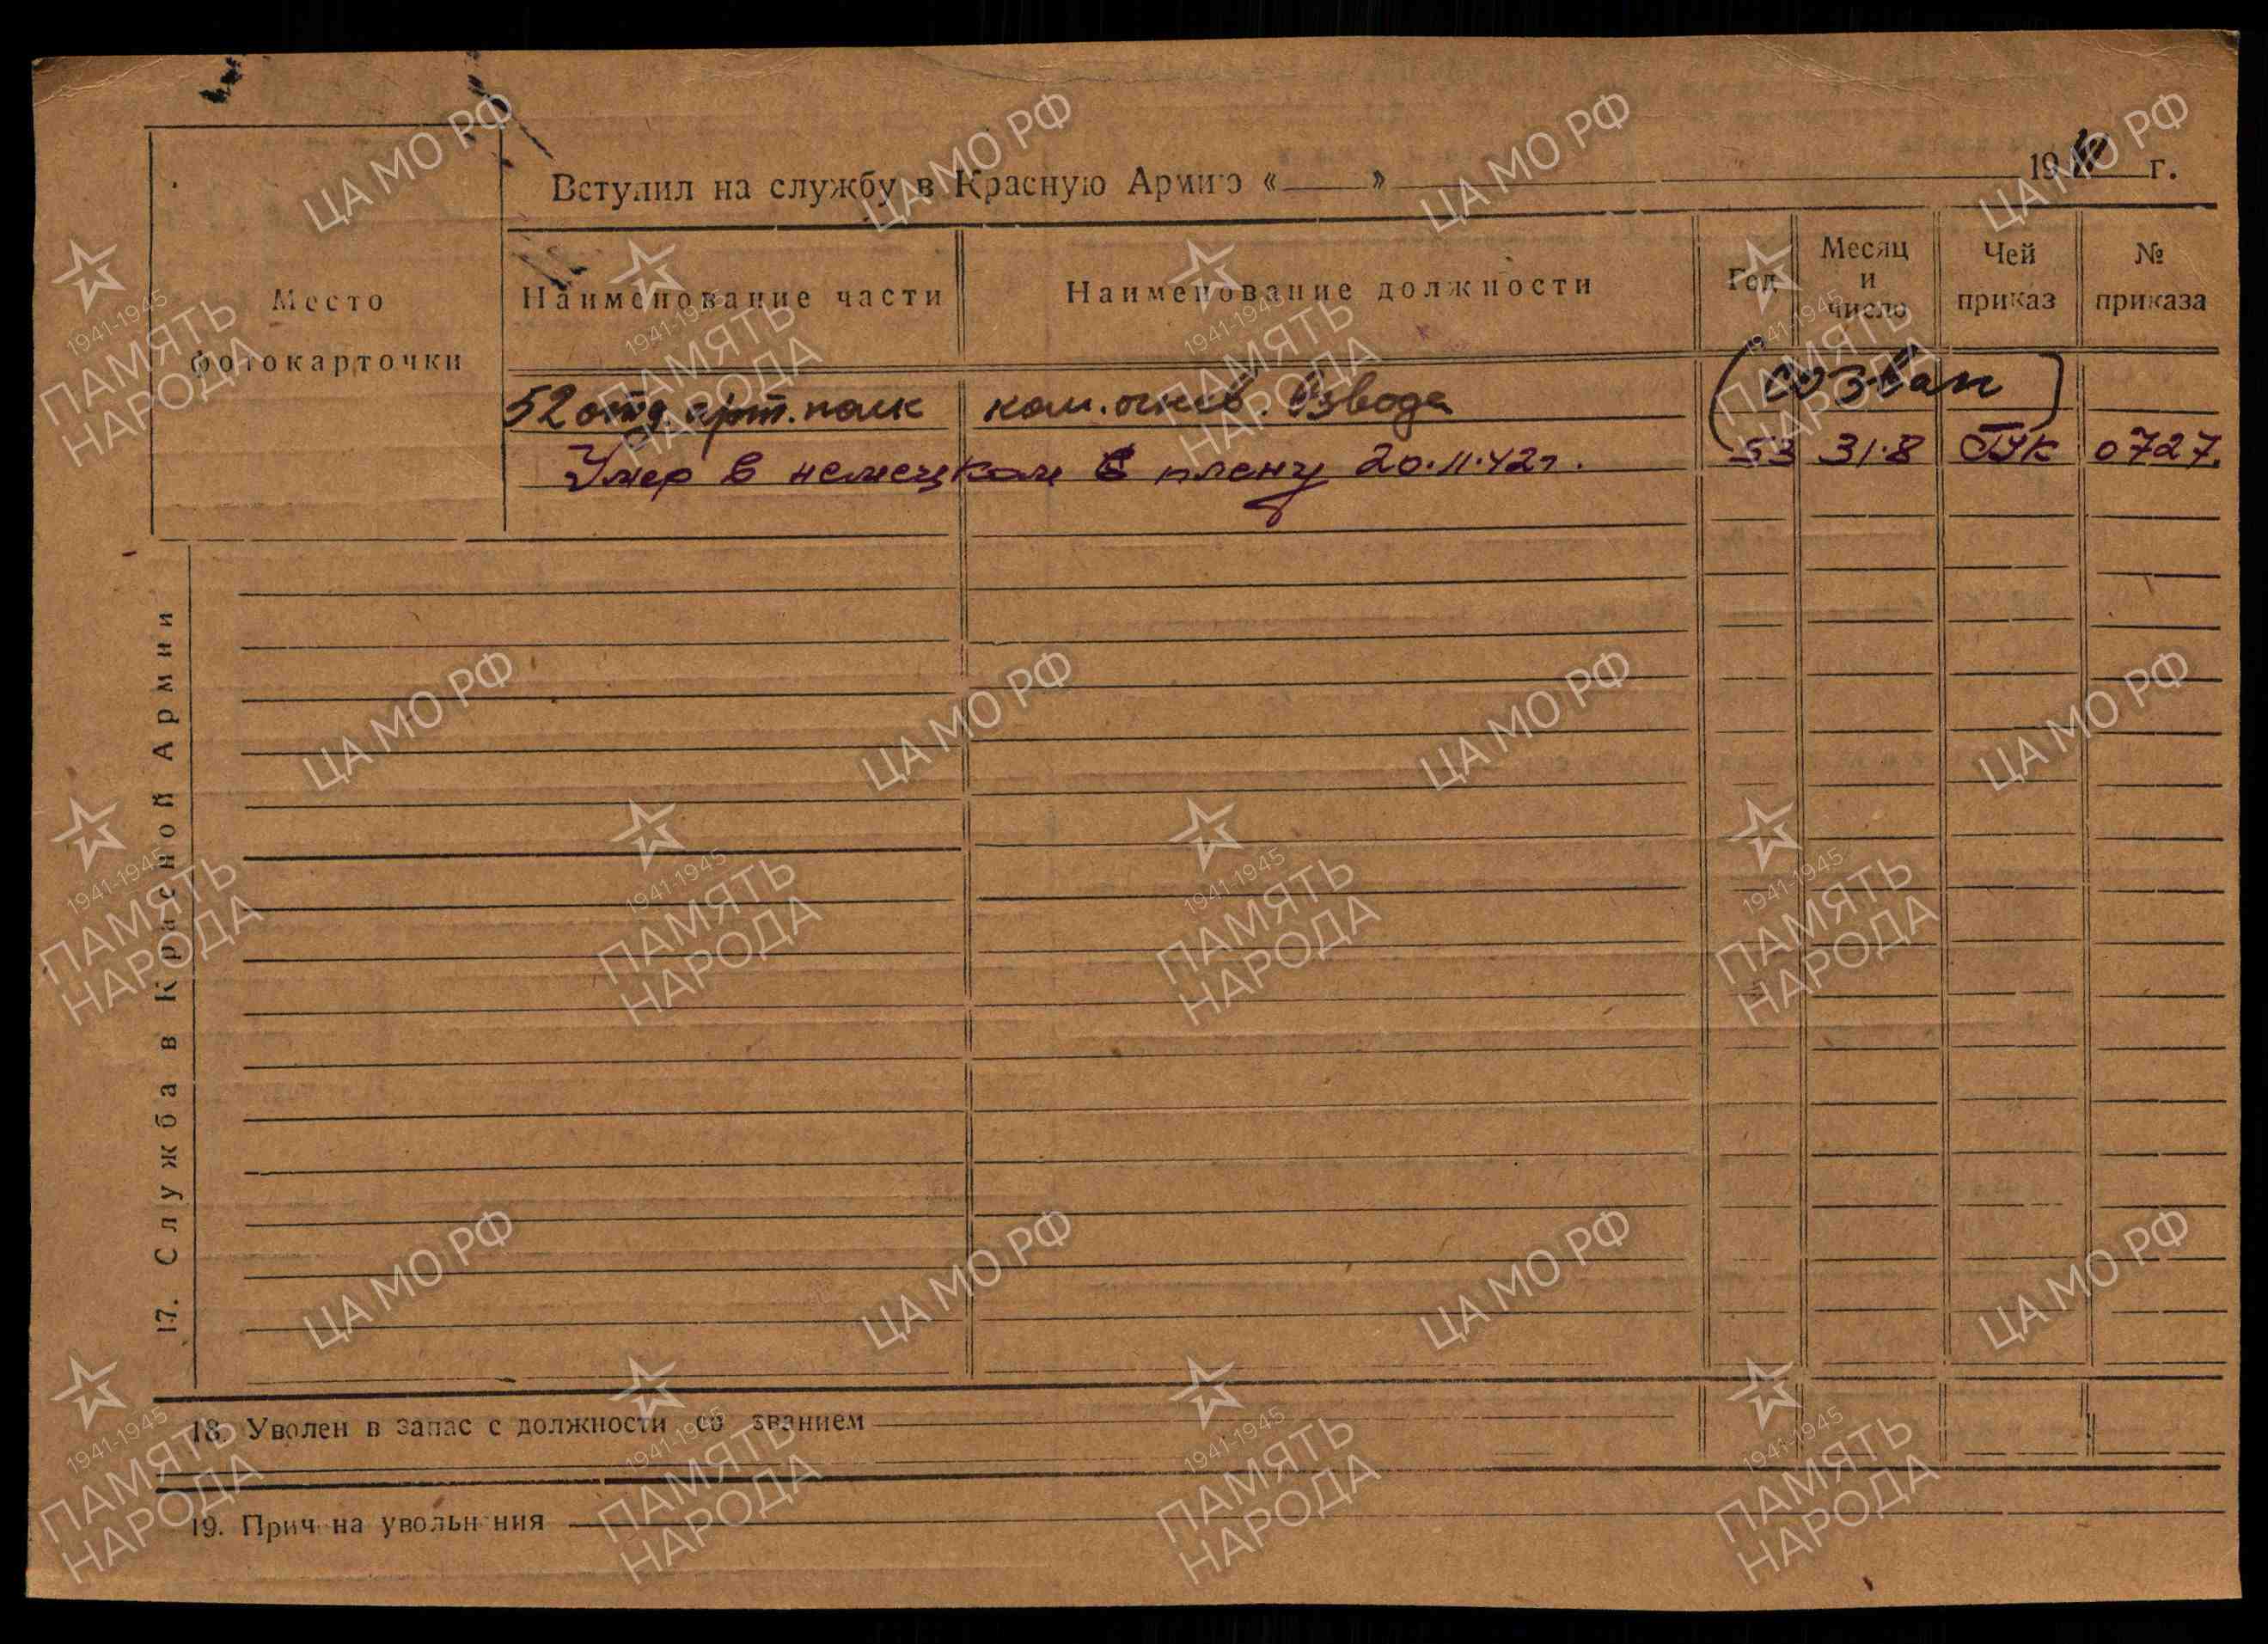 Вступил на службу в Красную Армию «___» 19 г.
Место фотокарточки
Наименование части
Наименование должности
Год
Месяц и число
Чей приказ
№ приказа
52 отд. арт. полк ком. огнев. взвода
Умер в немецком плену 20.11.42 г. 53 31.8 ГУК 0727.
17. Служба в Красной Армии
18. Уволен в запас с должности со званием
19. Причина увольнения
ЦА МО РФ
1941-1945
ПАМЯТЬ
НАРОДА